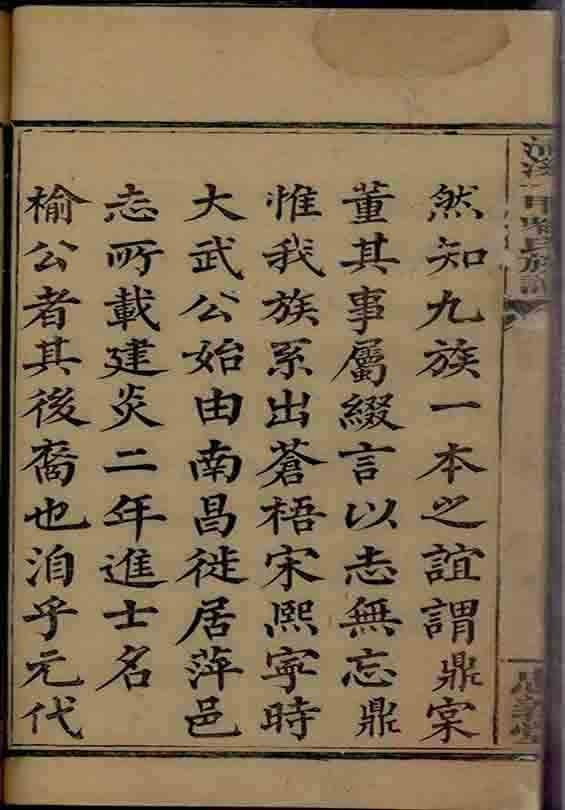 然知九族一本之誼謂鼎
董其事屬綴言以志無忘鼎
惟我族系出蒼梧宋熙寧時
大武公始由南昌徙居萍邑
志所載建炎二年進士名
榆公者其後裔也洎乎元代